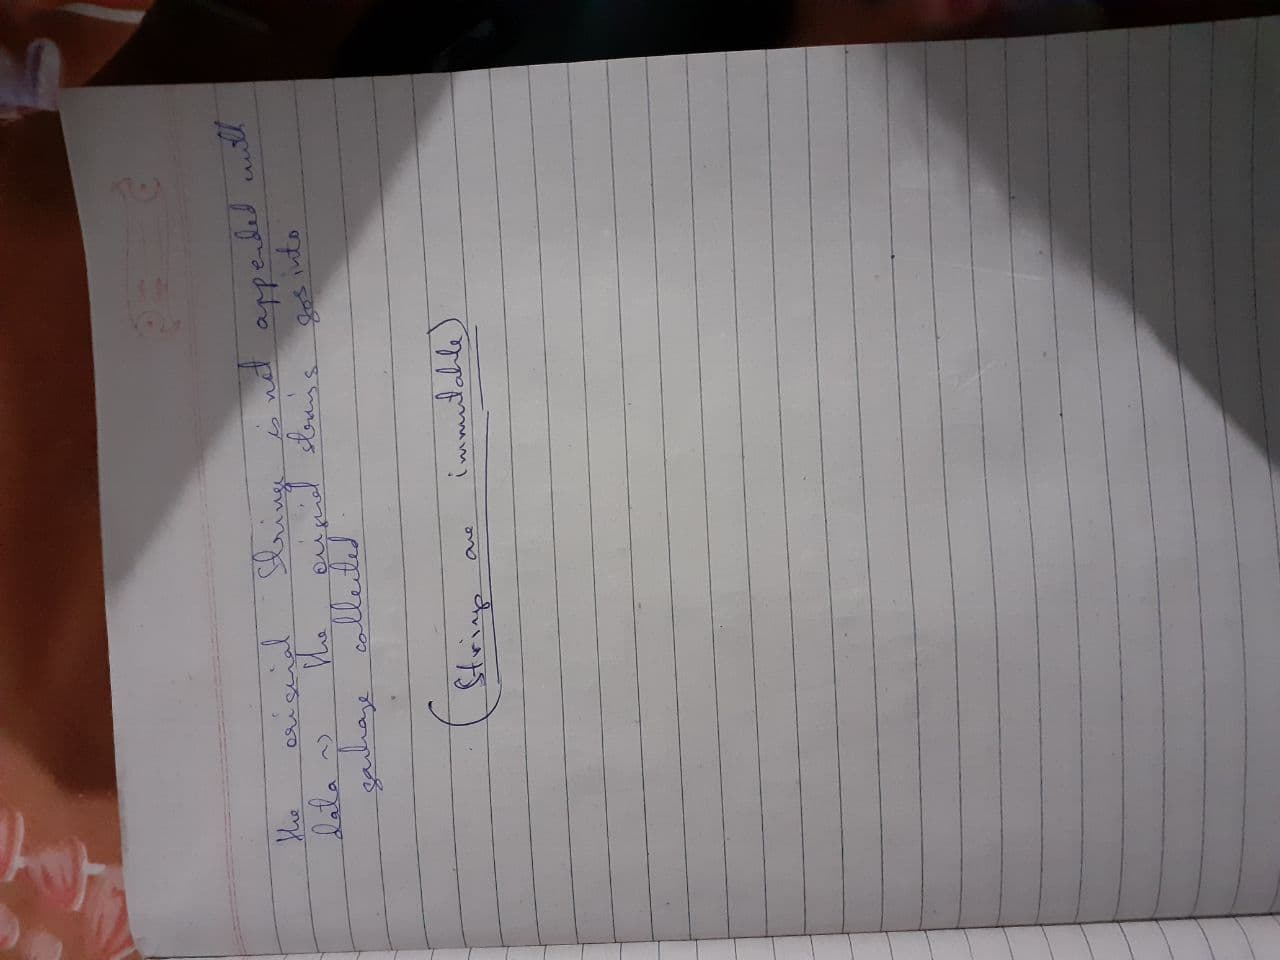 the original String is not appended with
data ~> the original string gos into
garbage collected
(Strings are immutable)